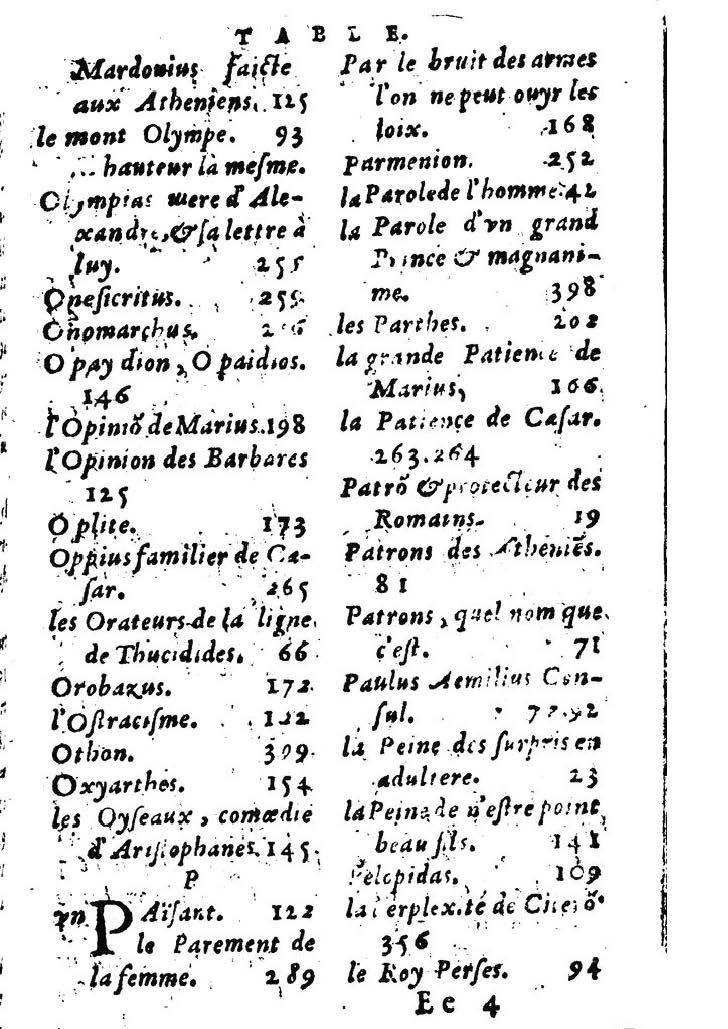 TABLE.
Mardonius faicte
aux Atheniens. 125
le mont Olympe. 93
hauteur la mesme.
Olympias mere d'Ale-
xandre, & sa lettre à
luy. 255
Onesicritus. 259
Onomarchus.
O pay dion, O paidios.
146
l'Opiniō de Marius. 198
l'Opinion des Barbares
125
Oplite. 173
Oppius familier de Cæ-
sar. 265
les Orateurs de la ligne
de Thucidides. 66
Orobazus. 172
l'Ostracisme. 122
Othon. 309
Oxyarthes. 154
les Oyseaux, comœdie
d'Aristophanes. 145
P
vn PAisant. 122
le Parement de
la femme. 289
Par le bruit des armes
l'on ne peut ouyr les
loix. 168
Parmenion. 252
la Parole de l'homme. 42
la Parole d'vn grand
Prince & magnani-
me. 398
les Parthes. 202
la grande Patience de
Marius, 166
la Patience de Cæsar.
263.264
Patrō & protecteur des
Romains. 19
Patrons des Atheniēs.
81
Patrons, quel nom que
c'est. 71
Paulus Aemilius Con-
sul. 77.92
la Peine des surpris en
adultere. 23
la Peine de n'estre point
beau fils. 141
Pelopidas. 109
la Perplexité de Cicerō
356
le Roy Perses. 94
Ee 4